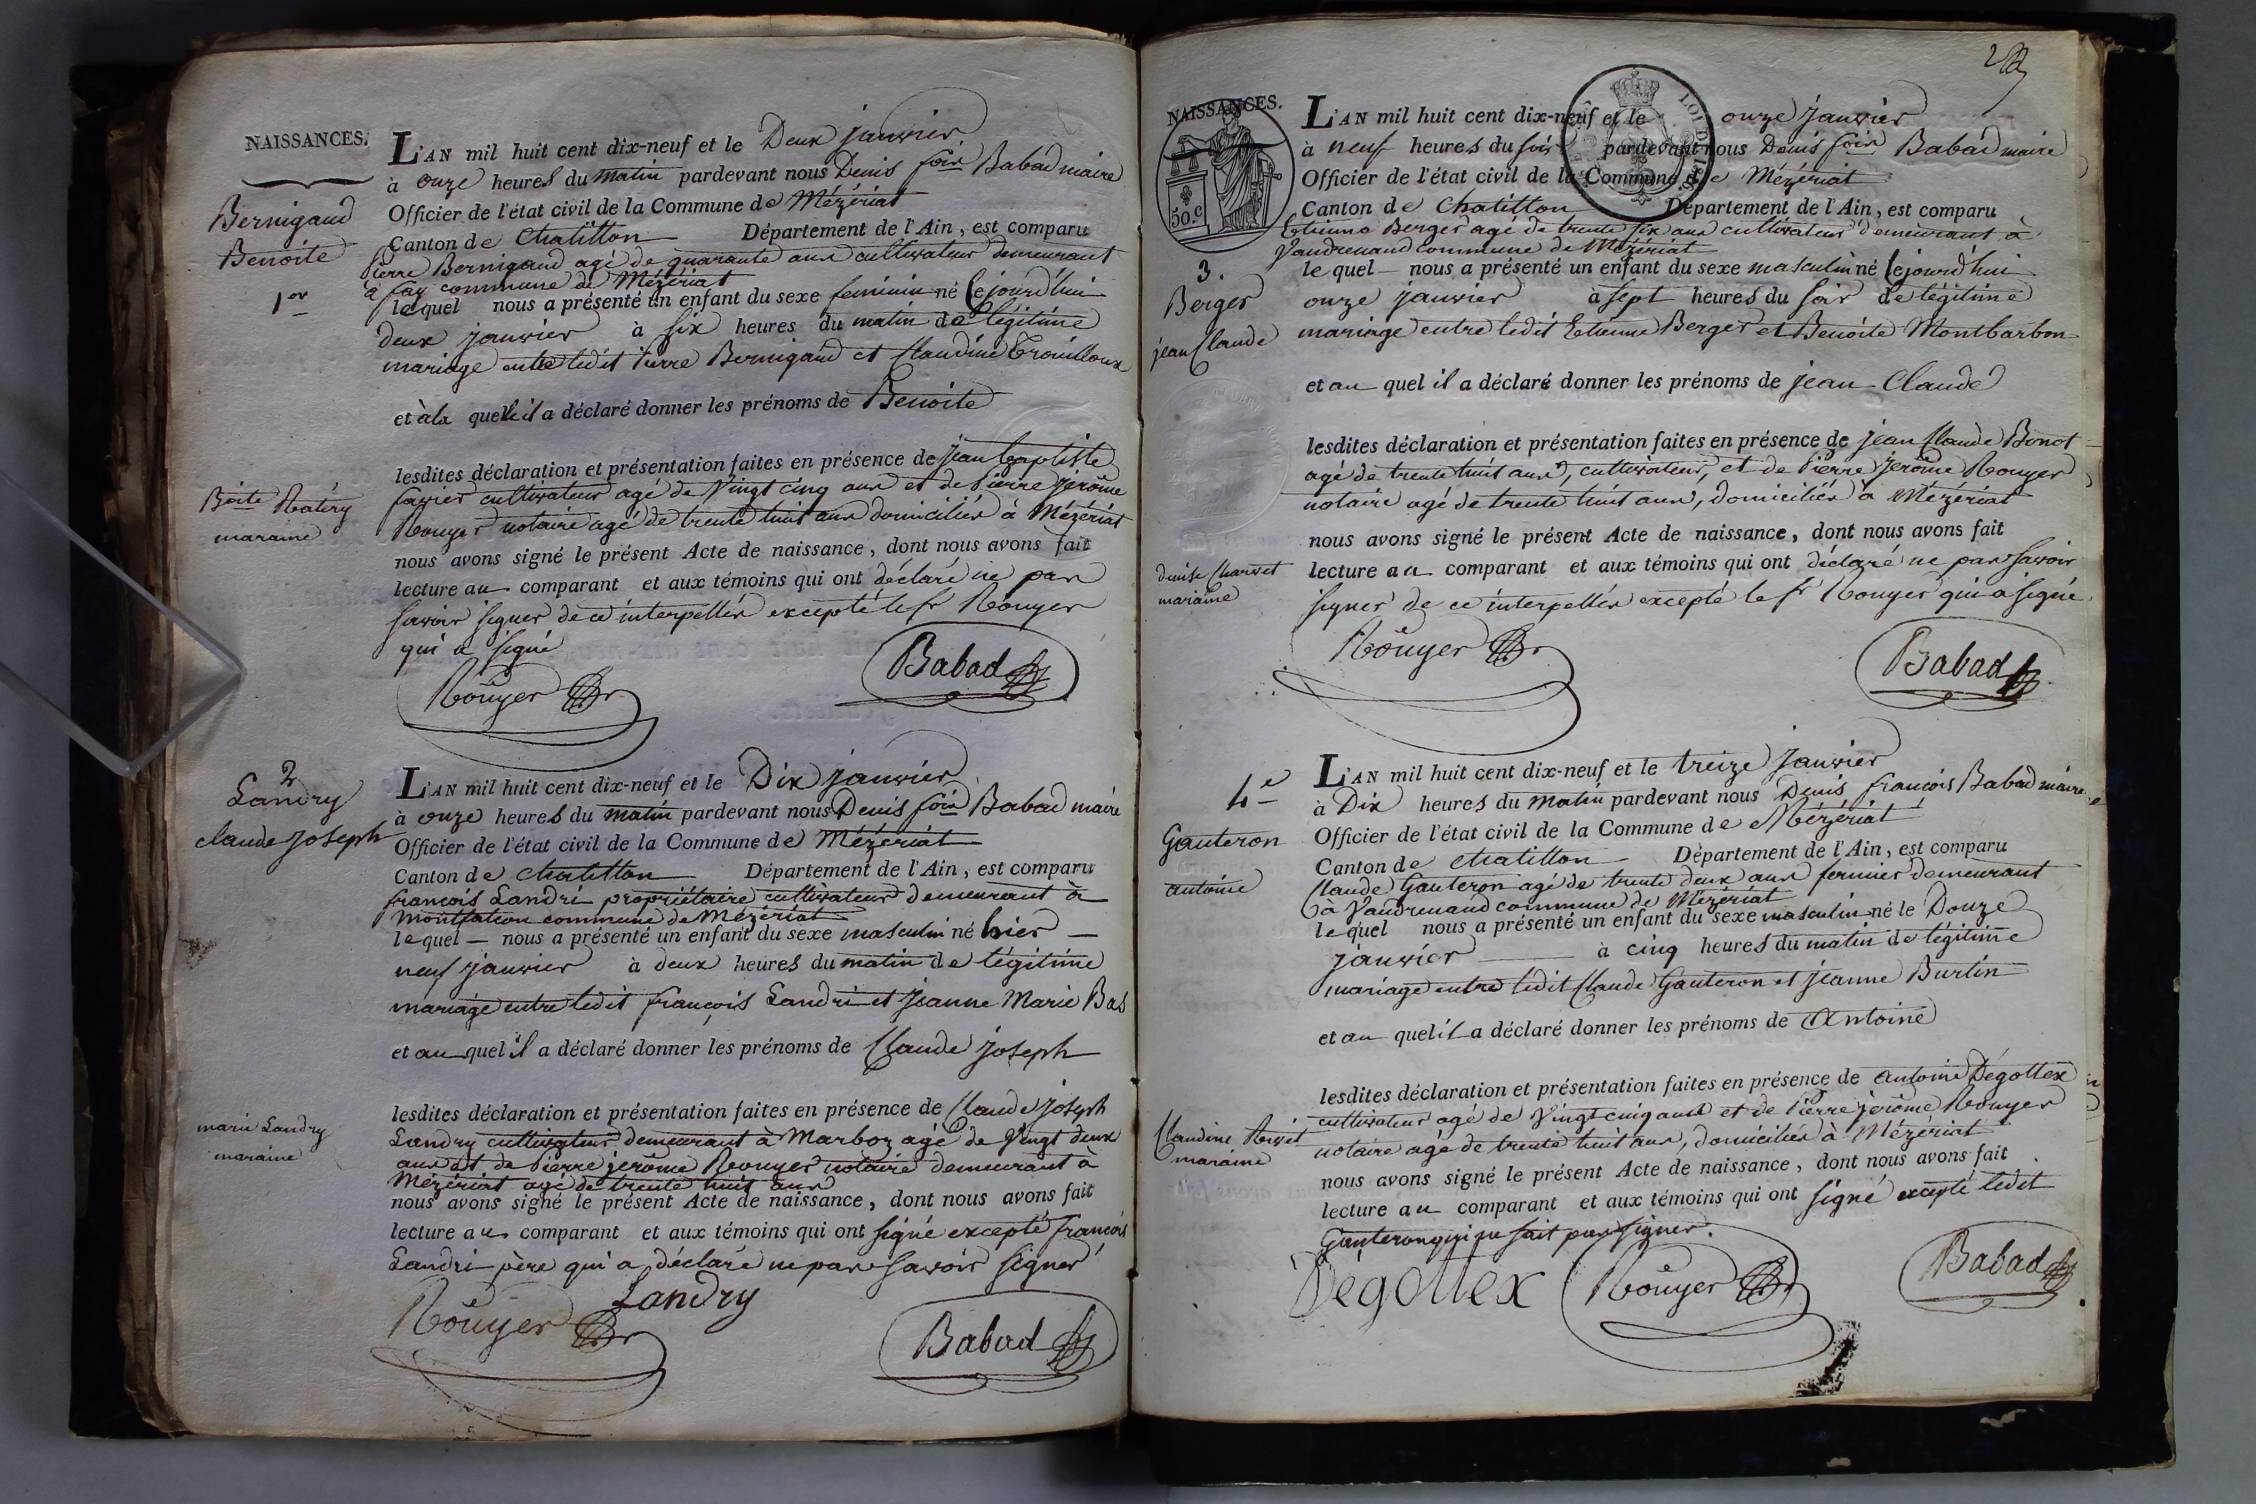 NAISSANCES.
Bernigaud
Benoite
1er
L'AN mil huit cent dix-neuf et le Deux janvier
à onze heures du matin pardevant nous Denis fois Babad maire
Officier de l'état civil de la Commune de Mézériat
Canton de Chatillon Département de l'Ain, est comparu
Pierre Bernigaud agé de quarante ans cultivateur demeurant
à fay commune de Mézériat
lequel nous a présenté un enfant du sexe feminin né Cejourd'hui
deux janvier à six heures du matin de légitime
mariage entre ledit Pierre Bernigaud et Claudine Trouilloux
et à la quelle il a déclaré donner les prénoms de Benoite
lesdites déclaration et présentation faites en présence de jean baptiste
favier cultivateur agé de Vingt cinq ans et de Pierre jerôme
Rouyer notaire agé de trente huit ans domiciliés à Mézériat
nous avons signé le présent Acte de naissance, dont nous avons fait
lecture au comparant et aux témoins qui ont déclaré ne pas
savoir signer de ce interpellés excepté le sr Rouyer
qui a signé
Bte maraine
Rouyer Babad
2
Landry
claude Joseph
L'AN mil huit cent dix-neuf et le Dix janvier
à onze heures du matin pardevant nous Denis fois Babad maire
Officier de l'état civil de la Commune de Mézériat
Canton de Chatillon Département de l'Ain, est comparu
françois Landri propriétaire cultivateur demeurant à
Montfalcon commune de Mézériat
lequel nous a présenté un enfant du sexe masculin né hier
neuf janvier à deux heures du matin de légitime
mariage entre ledit françois Landri et Jeanne Marie Bas
et au quel il a déclaré donner les prénoms de Claude Joseph
lesdites déclaration et présentation faites en présence de Claude Joseph
Landry cultivateur demeurant à Marboz agé de Vingt deux
ans et de Pierre jerôme Rouyer notaire demeurant à
Mézériat agé de trente huit ans
nous avons signé le présent Acte de naissance, dont nous avons fait
lecture au comparant et aux témoins qui ont signé excepté françois
Landri père qui a déclaré ne pas savoir signer
marie Landry
maraine
Landry
Rouyer Babad
NAISSANCES.
50.c
LOI DE
3.
Berger
jean Claude
L'AN mil huit cent dix-neuf et le onze janvier
à neuf heures du soir pardevant nous Denis fois Babad maire
Officier de l'état civil de la Commune de Mézériat
Canton de Chatillon Département de l'Ain, est comparu
Etienne Berger agé de trente six ans cultivateur demeurant à
Vaudrenand commune de Mézériat
le quel nous a présenté un enfant du sexe masculin né Cejourd'hui
onze janvier à sept heures du soir de légitime
mariage entre ledit Etienne Berger et Benoite Montbarbon
et au quel il a déclaré donner les prénoms de jean Claude
lesdites déclaration et présentation faites en présence de jean Claude Bonot
agé de trente huit ans, cultivateur, et de Pierre jerôme Rouyer
notaire agé de trente huit ans, domiciliés à Mézériat
nous avons signé le présent Acte de naissance, dont nous avons fait
lecture au comparant et aux témoins qui ont déclaré ne pas savoir
signer de ce interpellés excepté le sr Rouyer qui a signé
denise Charvet
maraine
Rouyer Babad
4e
Gauteron
antoine
L'AN mil huit cent dix-neuf et le treize janvier
à Dix heures du matin pardevant nous Denis françois Babad maire
Officier de l'état civil de la Commune de Mézériat
Canton de Chatillon Département de l'Ain, est comparu
Claude Gauteron agé de trente deux ans fermier demeurant
à Vaudrenand commune de Mézériat
le quel nous a présenté un enfant du sexe masculin né le Douze
janvier à cinq heures du matin de légitime
mariage entre ledit Claude Gauteron et jeanne Burlin
et au quel il a déclaré donner les prénoms de Antoine
lesdites déclaration et présentation faites en présence de Antoine Dégottex
cultivateur agé de Vingt cinq ans et de Pierre jerôme Rouyer
notaire agé de trente huit ans, domiciliés à Mézériat
nous avons signé le présent Acte de naissance, dont nous avons fait
lecture au comparant et aux témoins qui ont signé excepté ledit
Gauteron qui ne sait pas signer.
Claudine
maraine
Dégottex Rouyer Babad